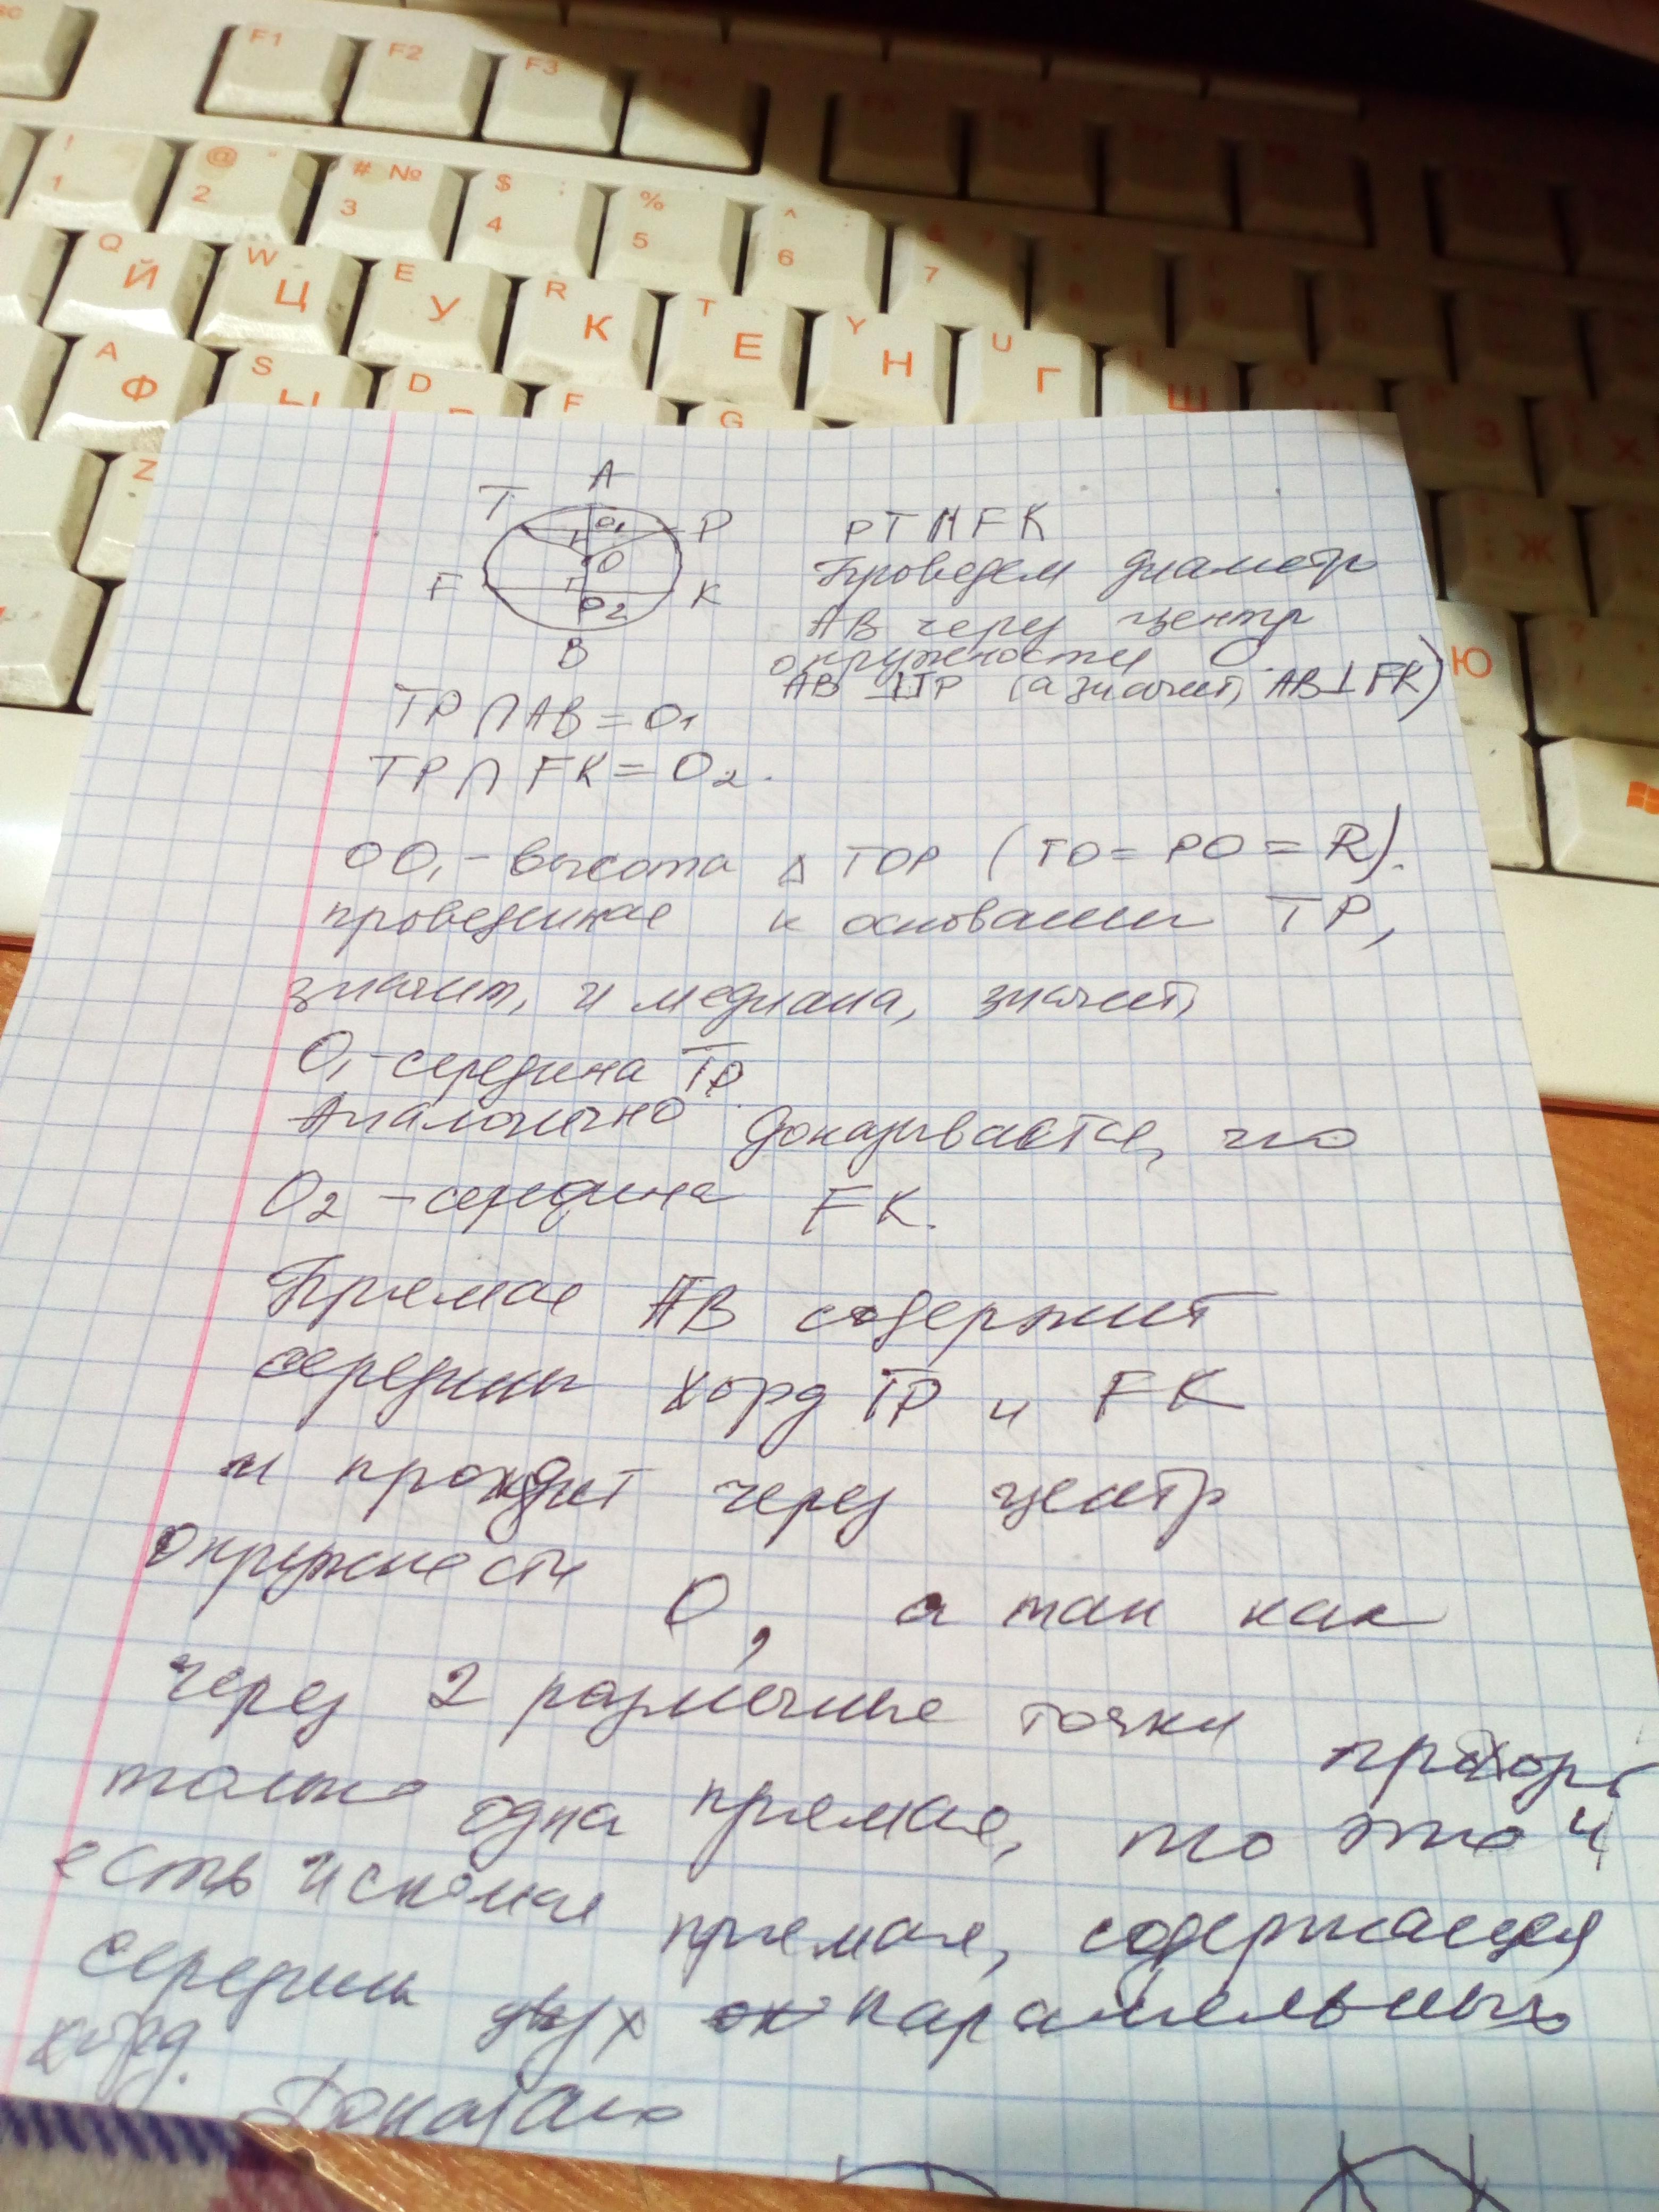 F1 F2 F3
! 1 @ 2 # № 3 $ ; 4 % 5 ^ 6 7
Q Й W Ц E У R К T Е Y Н U Г
A Ф S Ы D F G Ш З Х
Z Ж Ю
A
T O₁ P
O
F K
O₂
B
PT ∥ FK
Проведем диаметр
AB через центр
окружности
AB ⊥ TP (а значит, AB ⊥ FK)
TP ∩ AB = O₁
TP ∩ FK = O₂.
OO₁ - высота △ TOP (TO = PO = R).
проведенная к основанию TP,
значит, и медиана, значит,
O₁ - середина TP
Аналогично доказывается, что
O₂ - середина FK.
Прямая AB содержит
середины хорд TP и FK
и проходит через центр
окружности O, а так как
через 2 различные точки проходит
только одна прямая, то это и
есть искомая прямая, содержащая
середины двух параллельных
хорд.
Доказано